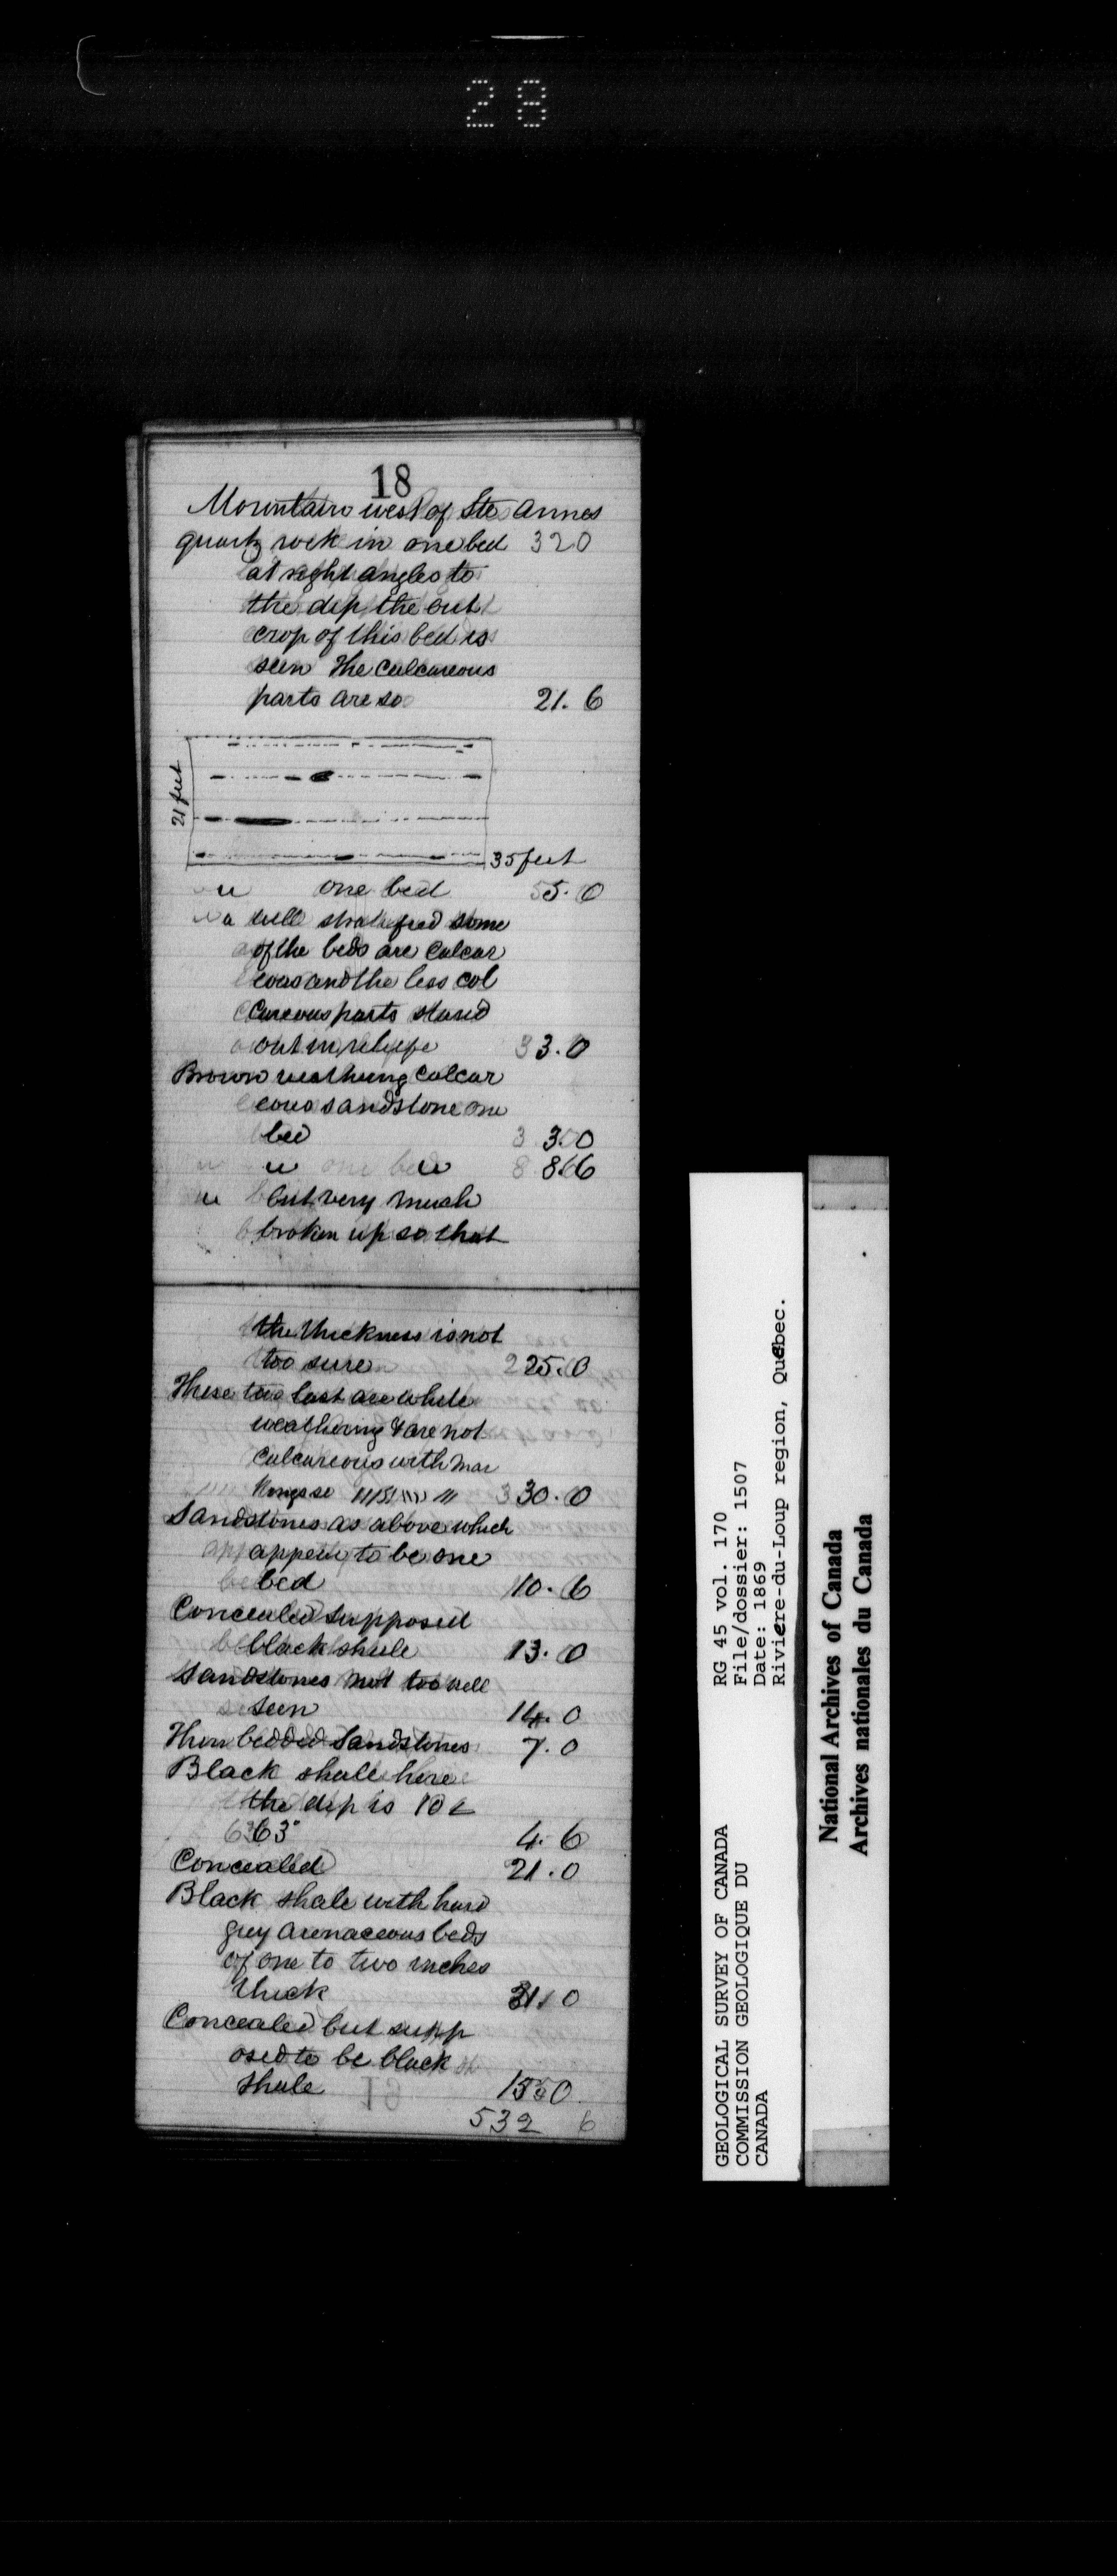 28
18
Mountain west of Ste Annes
quartz rock in one bed 320
at right angles to
the dip the out
crop of this bed is
seen The calcareous
parts are so 21. 6
21 feet
35 feet
" one bed 55. 0
" well stratified some
of the beds are calcar
eous and the less cal
careous parts stand
out in 33. 0
Brown weathering calcar
eous sandstone one
bed 3.0
" " 8.6
" but very much
broken up so that
the thickness is not
too sure 25. 0
These two last are white
weathering & are not
calcareous with mar
kings so 30. 0
Sandstones as above which
appear to be one
bed 10. 6
Concealed supposed
black shale 13. 0
Sandstones not too well
seen 14. 0
Thin bedded Sandstones 7. 0
Black shale here
the dip is
63° 4. 6
Concealed 21. 0
Black shale with hard
grey arenaceous beds
of one to two inches
thick 31. 0
Concealed but supp
osed to be black
shale 15 0
532 6
GEOLOGICAL SURVEY OF CANADA
COMMISSION GEOLOGIQUE DU
CANADA
RG 45 vol. 170
File/dossier: 1507
Date: 1869
Riviere-du-Loup region, Quebec.
National Archives of Canada
Archives nationales du Canada